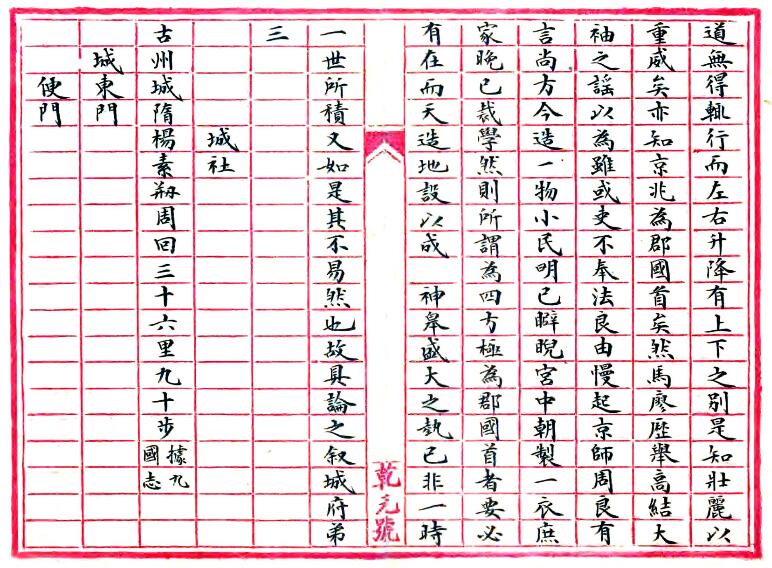 道無得輒行而左右升降有上下之別是知壯麗以
重威矣亦知京兆為郡國首矣然馬廖歷舉高結大
袖之謡以為雖或吏不奉法良由慢起京師周良有
言尚方今造一物小民明已睥睨宫中朝製一衣庶
家晚已裁學然則所謂為四方極為郡國首者要必
有在而天造地設以成　神皋盛大之埶已非一時
乾元號
一世所積又如是其不易然也故具論之叙城府弟
三
城社
古州城隋楊素剏周回三十六里九十步據九國志
城東門
便門